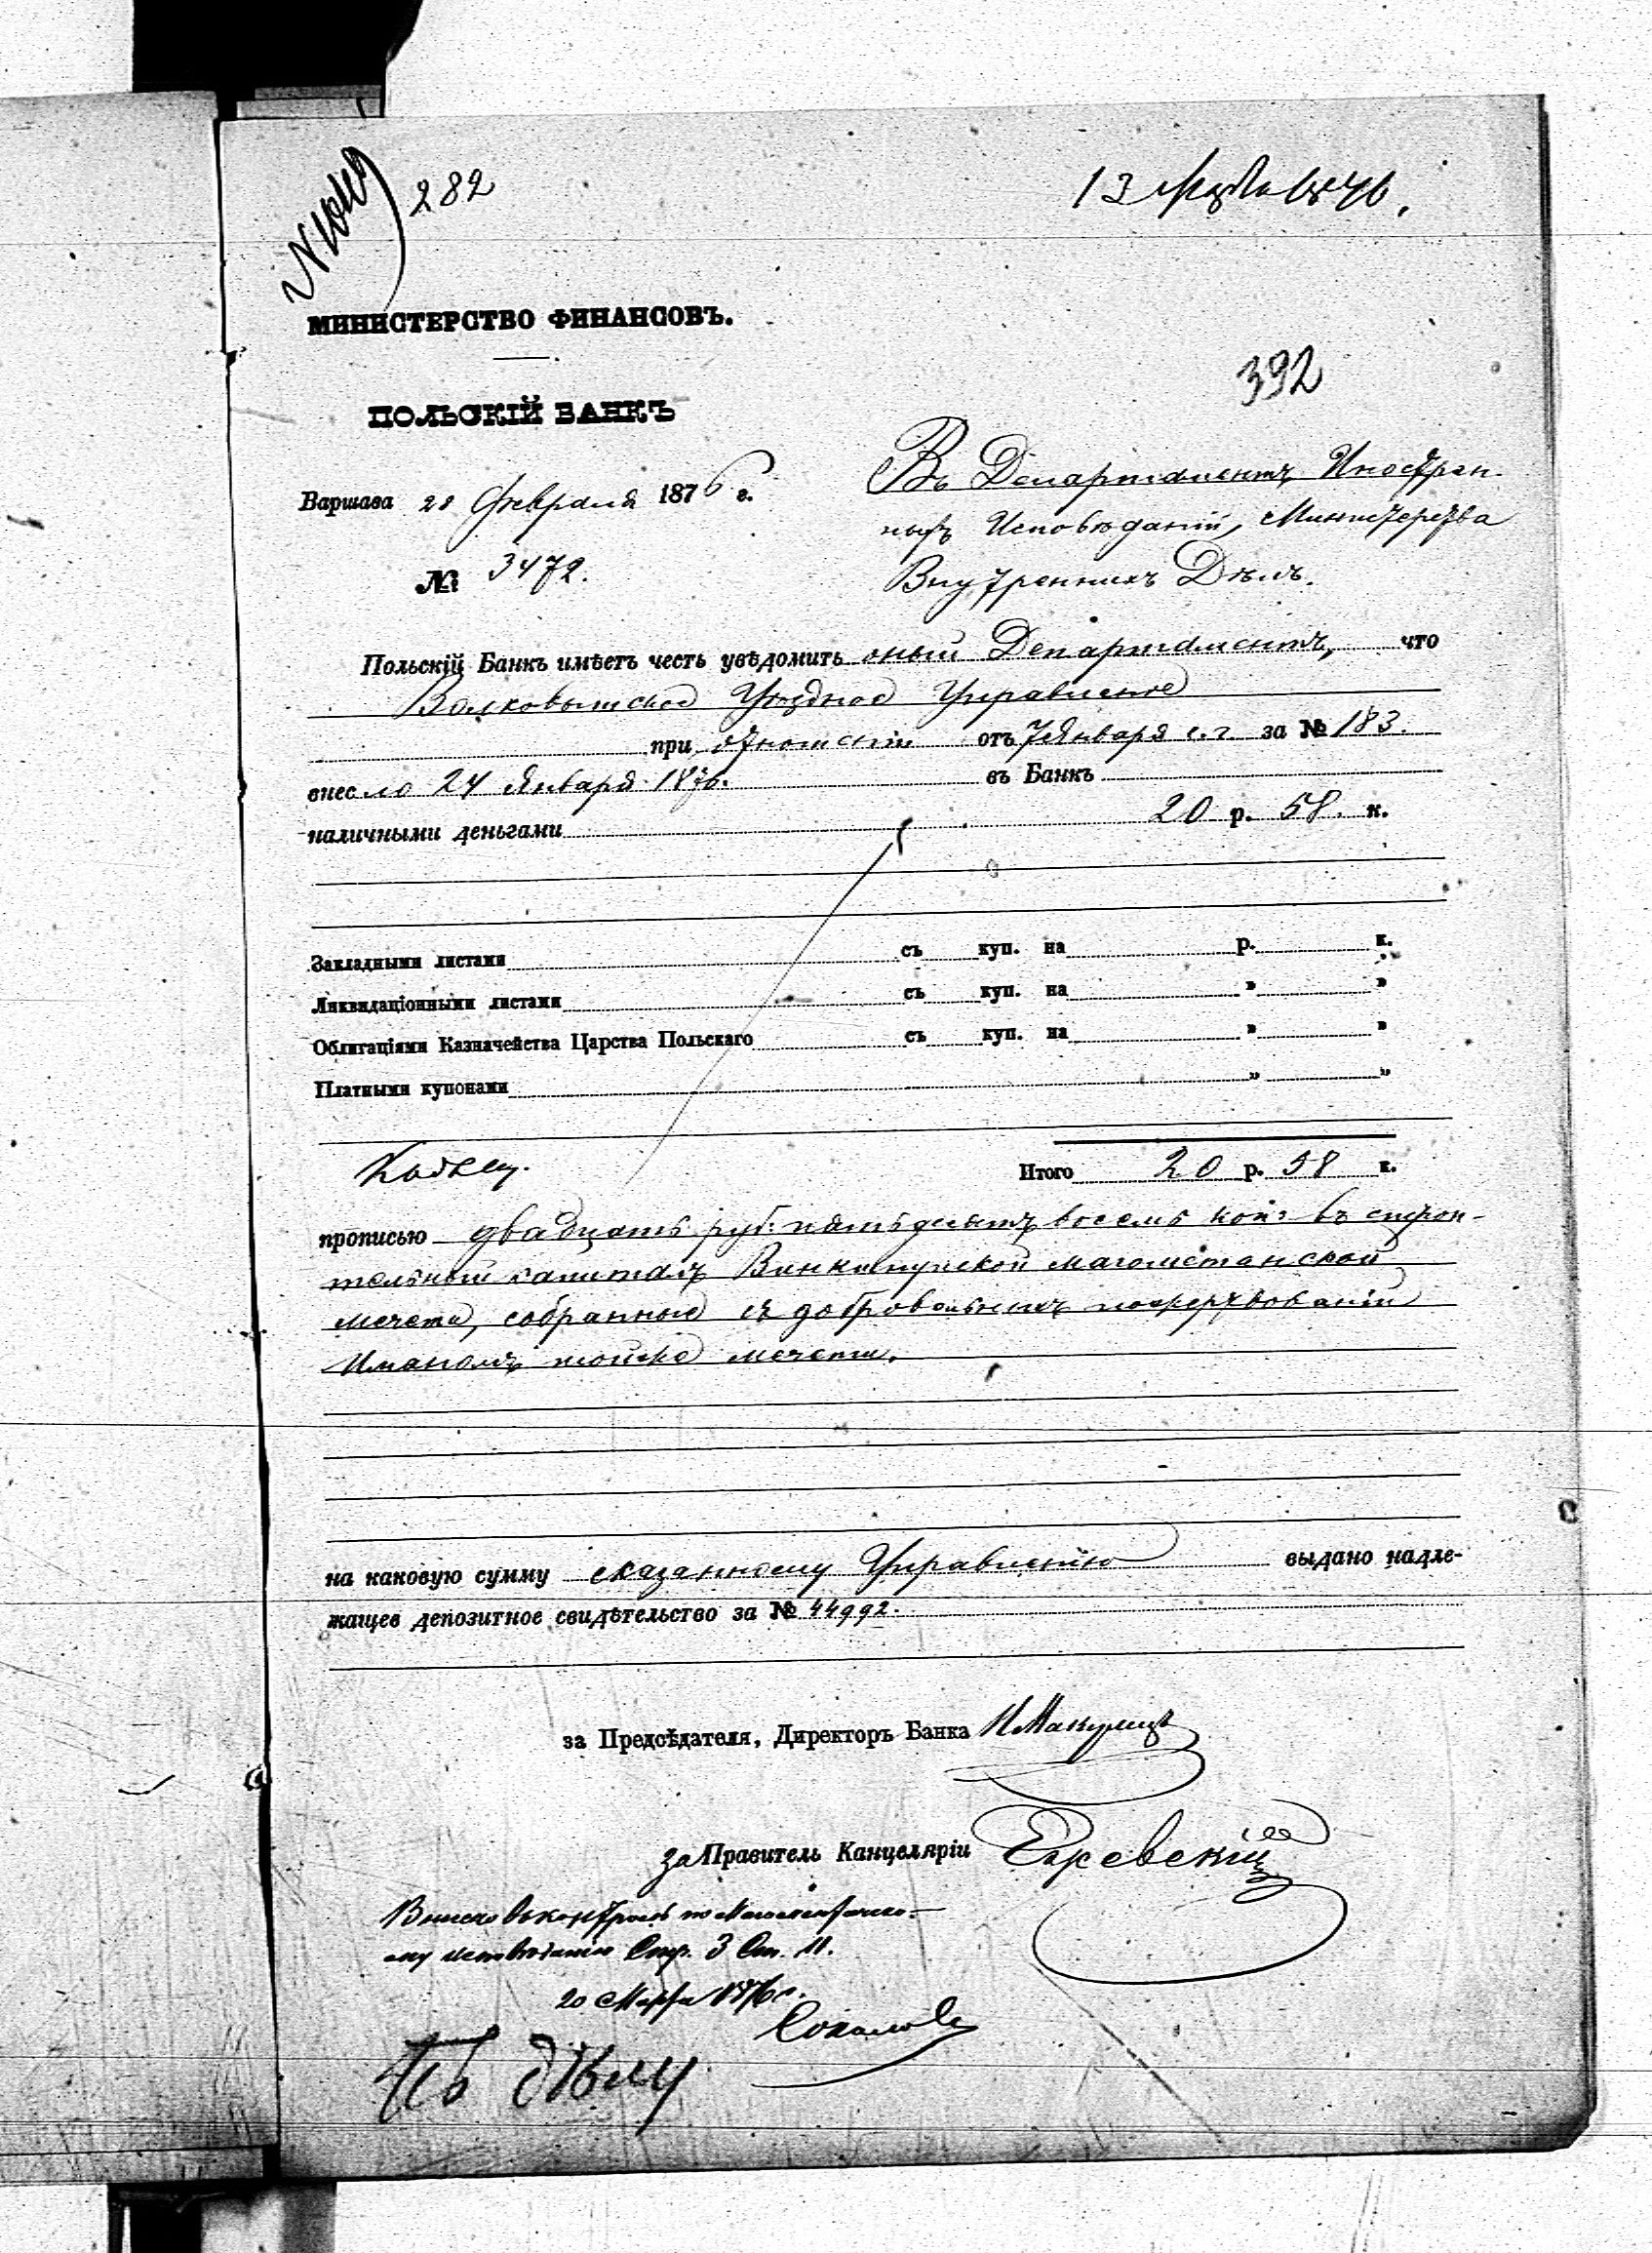 282
13 Марта 1876.
МИНИСТЕРСТВО ФИНАНСОВЪ.
392
ПОЛЬСКІЙ БАНКЪ
Въ Департаментъ Иностран-
ныхъ Исповѣданій, Министерства
Внутреннихъ Дѣлъ.
Варшава 28 Февраля 1876 г.
№ 3472.
Польскій Банкъ имѣетъ честь увѣдомить оный Департаментъ, что
Волковышское Уѣздное Управленіе
при отношеніи отъ 7 Января с.г. за № 183.
внесло 24 Января 1876. въ Банкъ
наличными деньгами 20 р. 58. к.
Закладными листами съ куп. на р. к.
Ликвидаціонными листами съ куп. на " "
Облигаціями Казначейства Царства Польскаго съ куп. на " "
Платными купонами " "
Итого 20 р. 58 к.
прописью двадцать руб: пятьдесятъ восемь коп: въ строи-
тельный капиталъ Винкшнупской магометанской
мечети, собранные съ добровольныхъ пожертвованій
Имамомъ тойже мечети.
на каковую сумму сказанному Управленію выдано надле-
жащее депозитное свидѣтельство за № 44992.
за Предсѣдателя, Директоръ Банка
за Правитель Канцеляріи
Внесено въ контроль по Магометанско-
му исповѣданію Стр. 3 Ст. 11.
20 Марта 1876 г.
Соколовъ
Къ дѣлу